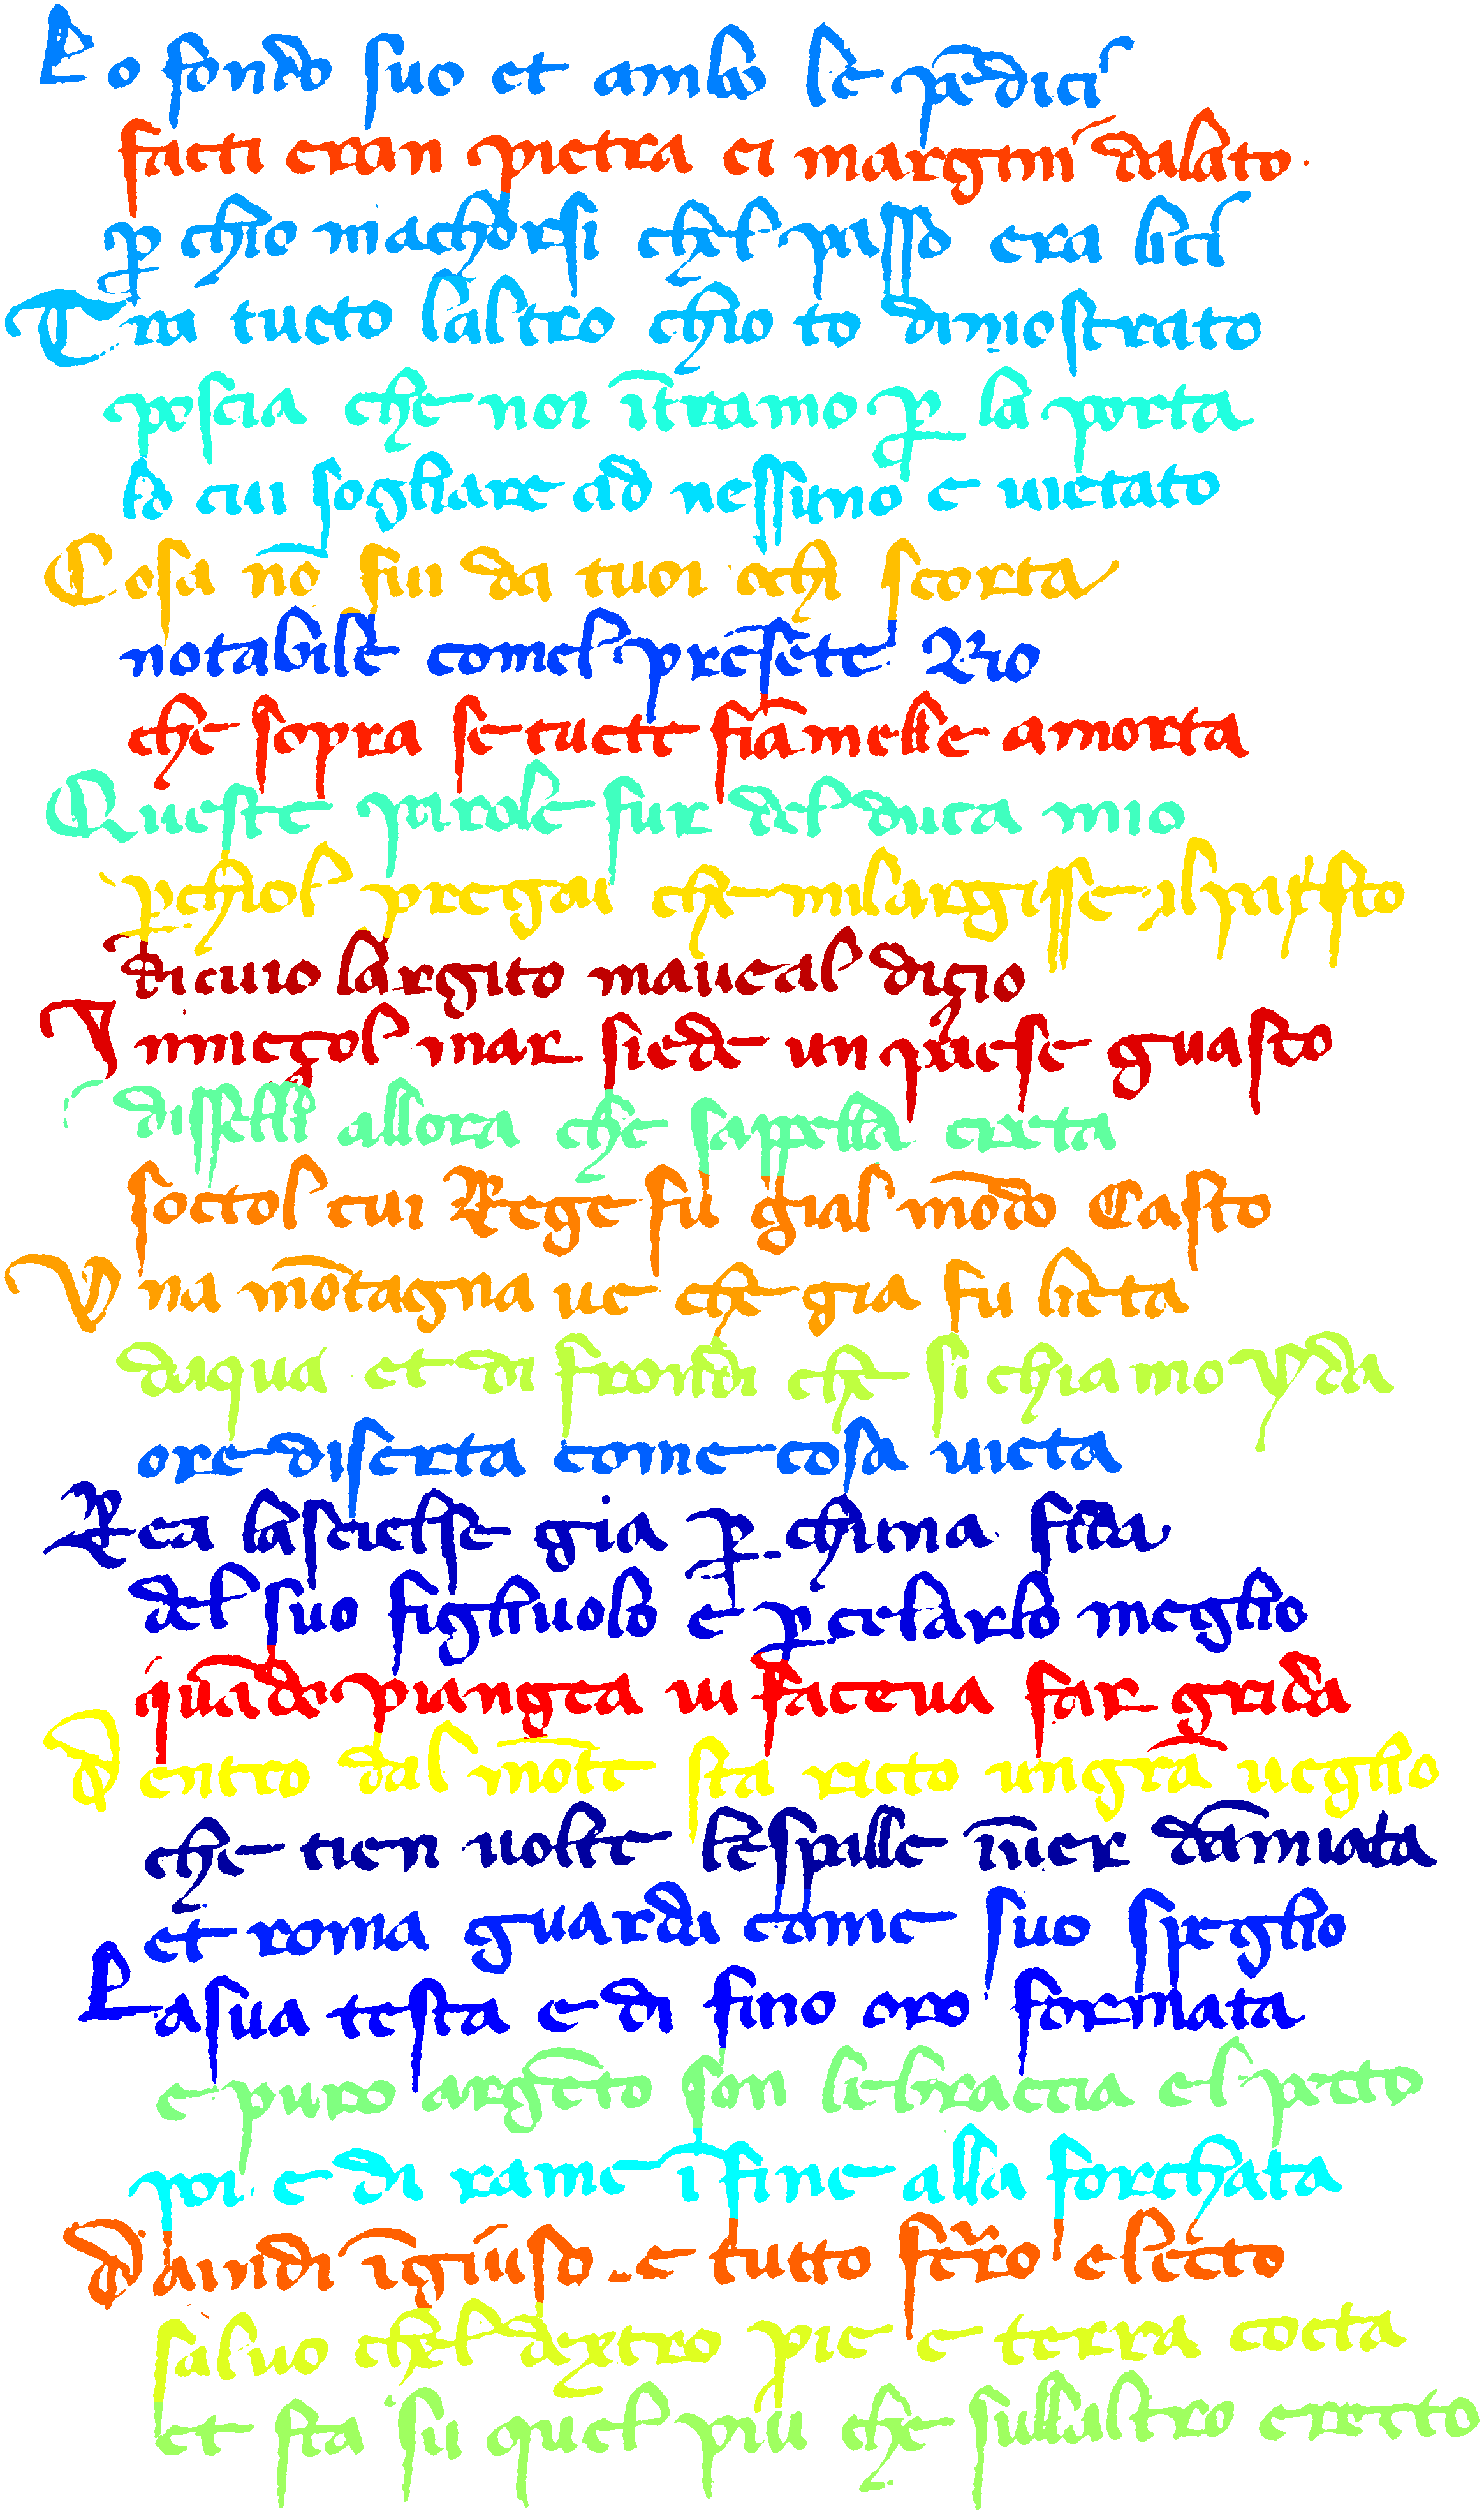 Lo fondo suo et ambo le pẽdici
facti eran pietra et margini dallato.
ꝑ chio macchorsi chel passo era lici
Tra tucto laltro chio to dimostrato
poscia che noi ītramo ꝑ la porta
lo cui sogliare ad nessuno e uietato
Cosa nō fu da tuoi ochi scorta
notabile comel presete rio
che sopra se tucte fiamelle amorta
Queste parole fur del duca mio
ꝑchiol pregai che mi largisse il pasto
di cui largito maueal disio
In mezol mar siede un paese guasto
disselli allora che sappella creta
soctol cui rege fu gial mōdo casto
Una mōtagna ue che gia fu lieta
daqua et di fronda che si chiamo yda
ore diserta come cosa uieta
Rea la scelse gia ꝑ chuna fida
del suo figliuolo e ꝑ celarlo meglio
quādo piangea ui facea far grida
Dentro dal mōte sta ricto un gra ueglio
che tien uolte le spalle īuer dāmiata
et roma guarda come suo speglio
La sua testa e di fino oro formata
e puro argēto son le braccia el pecto
poi e di rame īfine alla forchata
Da indi ī giuso e tucto ferro electo
saluo chel dextro pie e terra cocta
et sta in su quel piu che sullaltro erecto